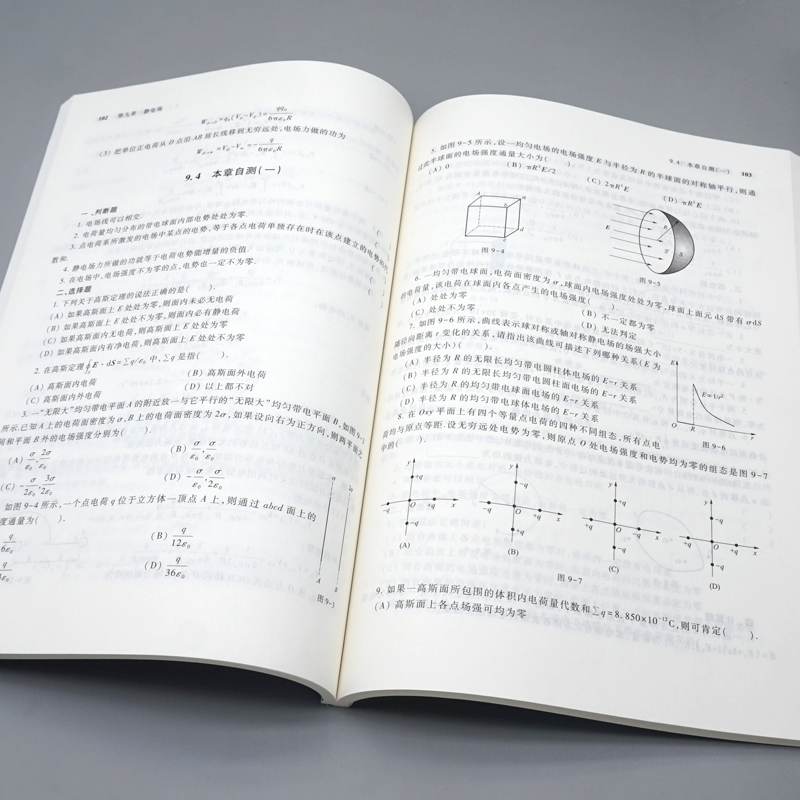 102 第九章 静电场
W_{D→∞}=q_0(V_D-V_∞)=-qq_0/6πε_0R
(3) 把单位正电荷从 D 点沿 AB 延长线移到无穷远处,电场力做的功为
W_{D→∞}=V_D-V_∞=-q/6πε_0R
9.4 本章自测(一)
一、判断题
1. 电场线可以相交.
2. 电荷量均匀分布的带电球面内部电势处处为零.
3. 点电荷系所激发的电场中某点的电势,等于各点电荷单独存在时在该点建立的电势的代
数和.
4. 静电场力所做的功就等于电荷电势能增量的负值.
5. 在电场中,电场强度不为零的点,电势也一定不为零.
二、选择题
1. 下列关于高斯定理的说法正确的是( ).
(A) 如果高斯面上 E 处处为零,则面内未必无电荷
(B) 如果高斯面上 E 处处不为零,则面内必有静电荷
(C) 如果高斯面内无电荷,则高斯面上 E 处处为零
(D) 如果高斯面内有净电荷,则高斯面上 E 处处不为零
2. 在高斯定理∮E·dS=∑q/ε_0 中,∑q 是指( ).
(A) 高斯面内电荷 (B) 高斯面外电荷
(C) 高斯面内外电荷 (D) 以上都不对
3. 一“无限大”均匀带电平面 A 的附近放一与它平行的“无限大”均匀带电平面 B,如图 9-3
所示.已知 A 上的电荷面密度为 σ,B 上的电荷面密度为 2σ,如果设向右为正方向,则两平面之
间和平面 B 外的电场强度分别为( ).
(A) σ/ε_0, 2σ/ε_0 (B) σ/ε_0, σ/ε_0
(C) -σ/2ε_0, 3σ/2ε_0 (D) -σ/ε_0, σ/2ε_0
σ 2σ
如图 9-4 所示,一个点电荷 q 位于立方体一顶点 A 上,则通过 abcd 面上的
度通量为( ).
6ε_0 (B) q/12ε_0
(D) q/36ε_0
A B
图 9-3
9.4 本章自测(一) 103
5. 如图 9-5 所示,设一均匀电场的电场强度 E 与半径为 R 的半球面的对称轴平行,则通
过此半球面的电场强度通量大小为( ).
(A) 0 (B) πR²E/2 (C) 2πR²E (D) πR²E
图 9-4
E R S
图 9-5
6. 一均匀带电球面,电荷面密度为 σ,球面内电场强度处处为零,球面上面元 dS 带有 σdS
的电荷量,该电荷在球面内各点产生的电场强度( ).
(A) 处处为零 (B) 不一定都为零
(C) 处处不为零 (D) 无法判定
7. 如图 9-6 所示,曲线表示球对称或轴对称静电场的场强大小
随径向距离 r 变化的关系,请指出该曲线可描述下列哪种关系(E 为
电场强度的大小)( ).
(A) 半径为 R 的无限长均匀带电圆柱体电场的 E-r 关系
(B) 半径为 R 的无限长均匀带电圆柱面电场的 E-r 关系
(C) 半径为 R 的均匀带电球面电场的 E-r 关系
(D) 半径为 R 的均匀带电球体电场的 E-r 关系
E
E∝1/r²
O R r
图 9-6
8. 在 Oxy 平面上有四个等量点电荷的四种不同组态,所有点电
荷均与原点等距.设无穷远处电势为零,则原点 O 处电场强度和电势均为零的组态是图 9-7
中的( ).
(A)
(B)
(C)
(D)
图 9-7
9. 如果一高斯面所包围的体积内电荷量代数和 ∑q=8.850×10⁻¹²C,则可肯定( ).
(A) 高斯面上各点场强可均为零